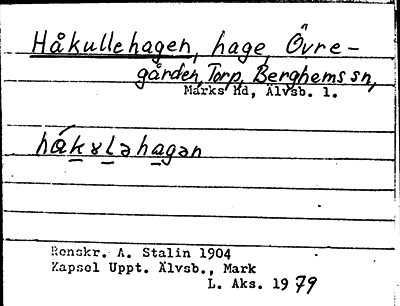 Håkullehagen, hage, Övre-
gården, Torp, Berghems sn,
Marks Hd, Älvsb. l.
hǻkɤləhagən
Renskr. A. Stalin 1904
Kapsel Uppt. Älvsb., Mark
L. Aks. 1979